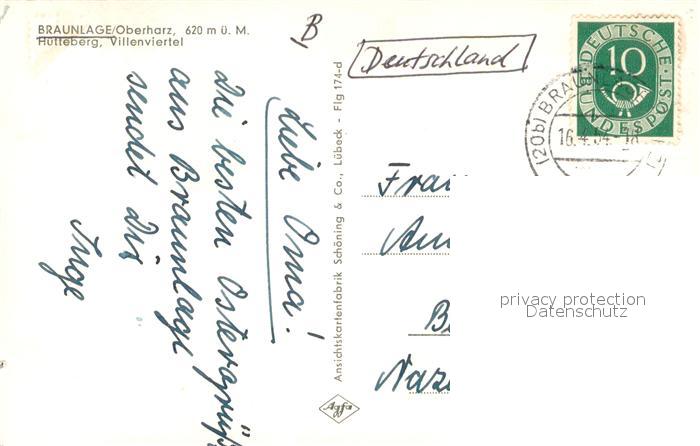 BRAUNLAGE/Oberharz, 620 m ü. M.
Hütteberg, Villenviertel
B
Deutschland
DEUTSCHE
10
BUNDESPOST
(20b) BRAUN
16.4.54.-18
Liebe Oma!
Die besten Ostergrüß
aus Braunlage
sendet Dir
Inge
Ansichtskartenfabrik Schöning & Co., Lübeck - Flg 174-d
Agfa
Frau
B
Naz
privacy protection
Datenschutz